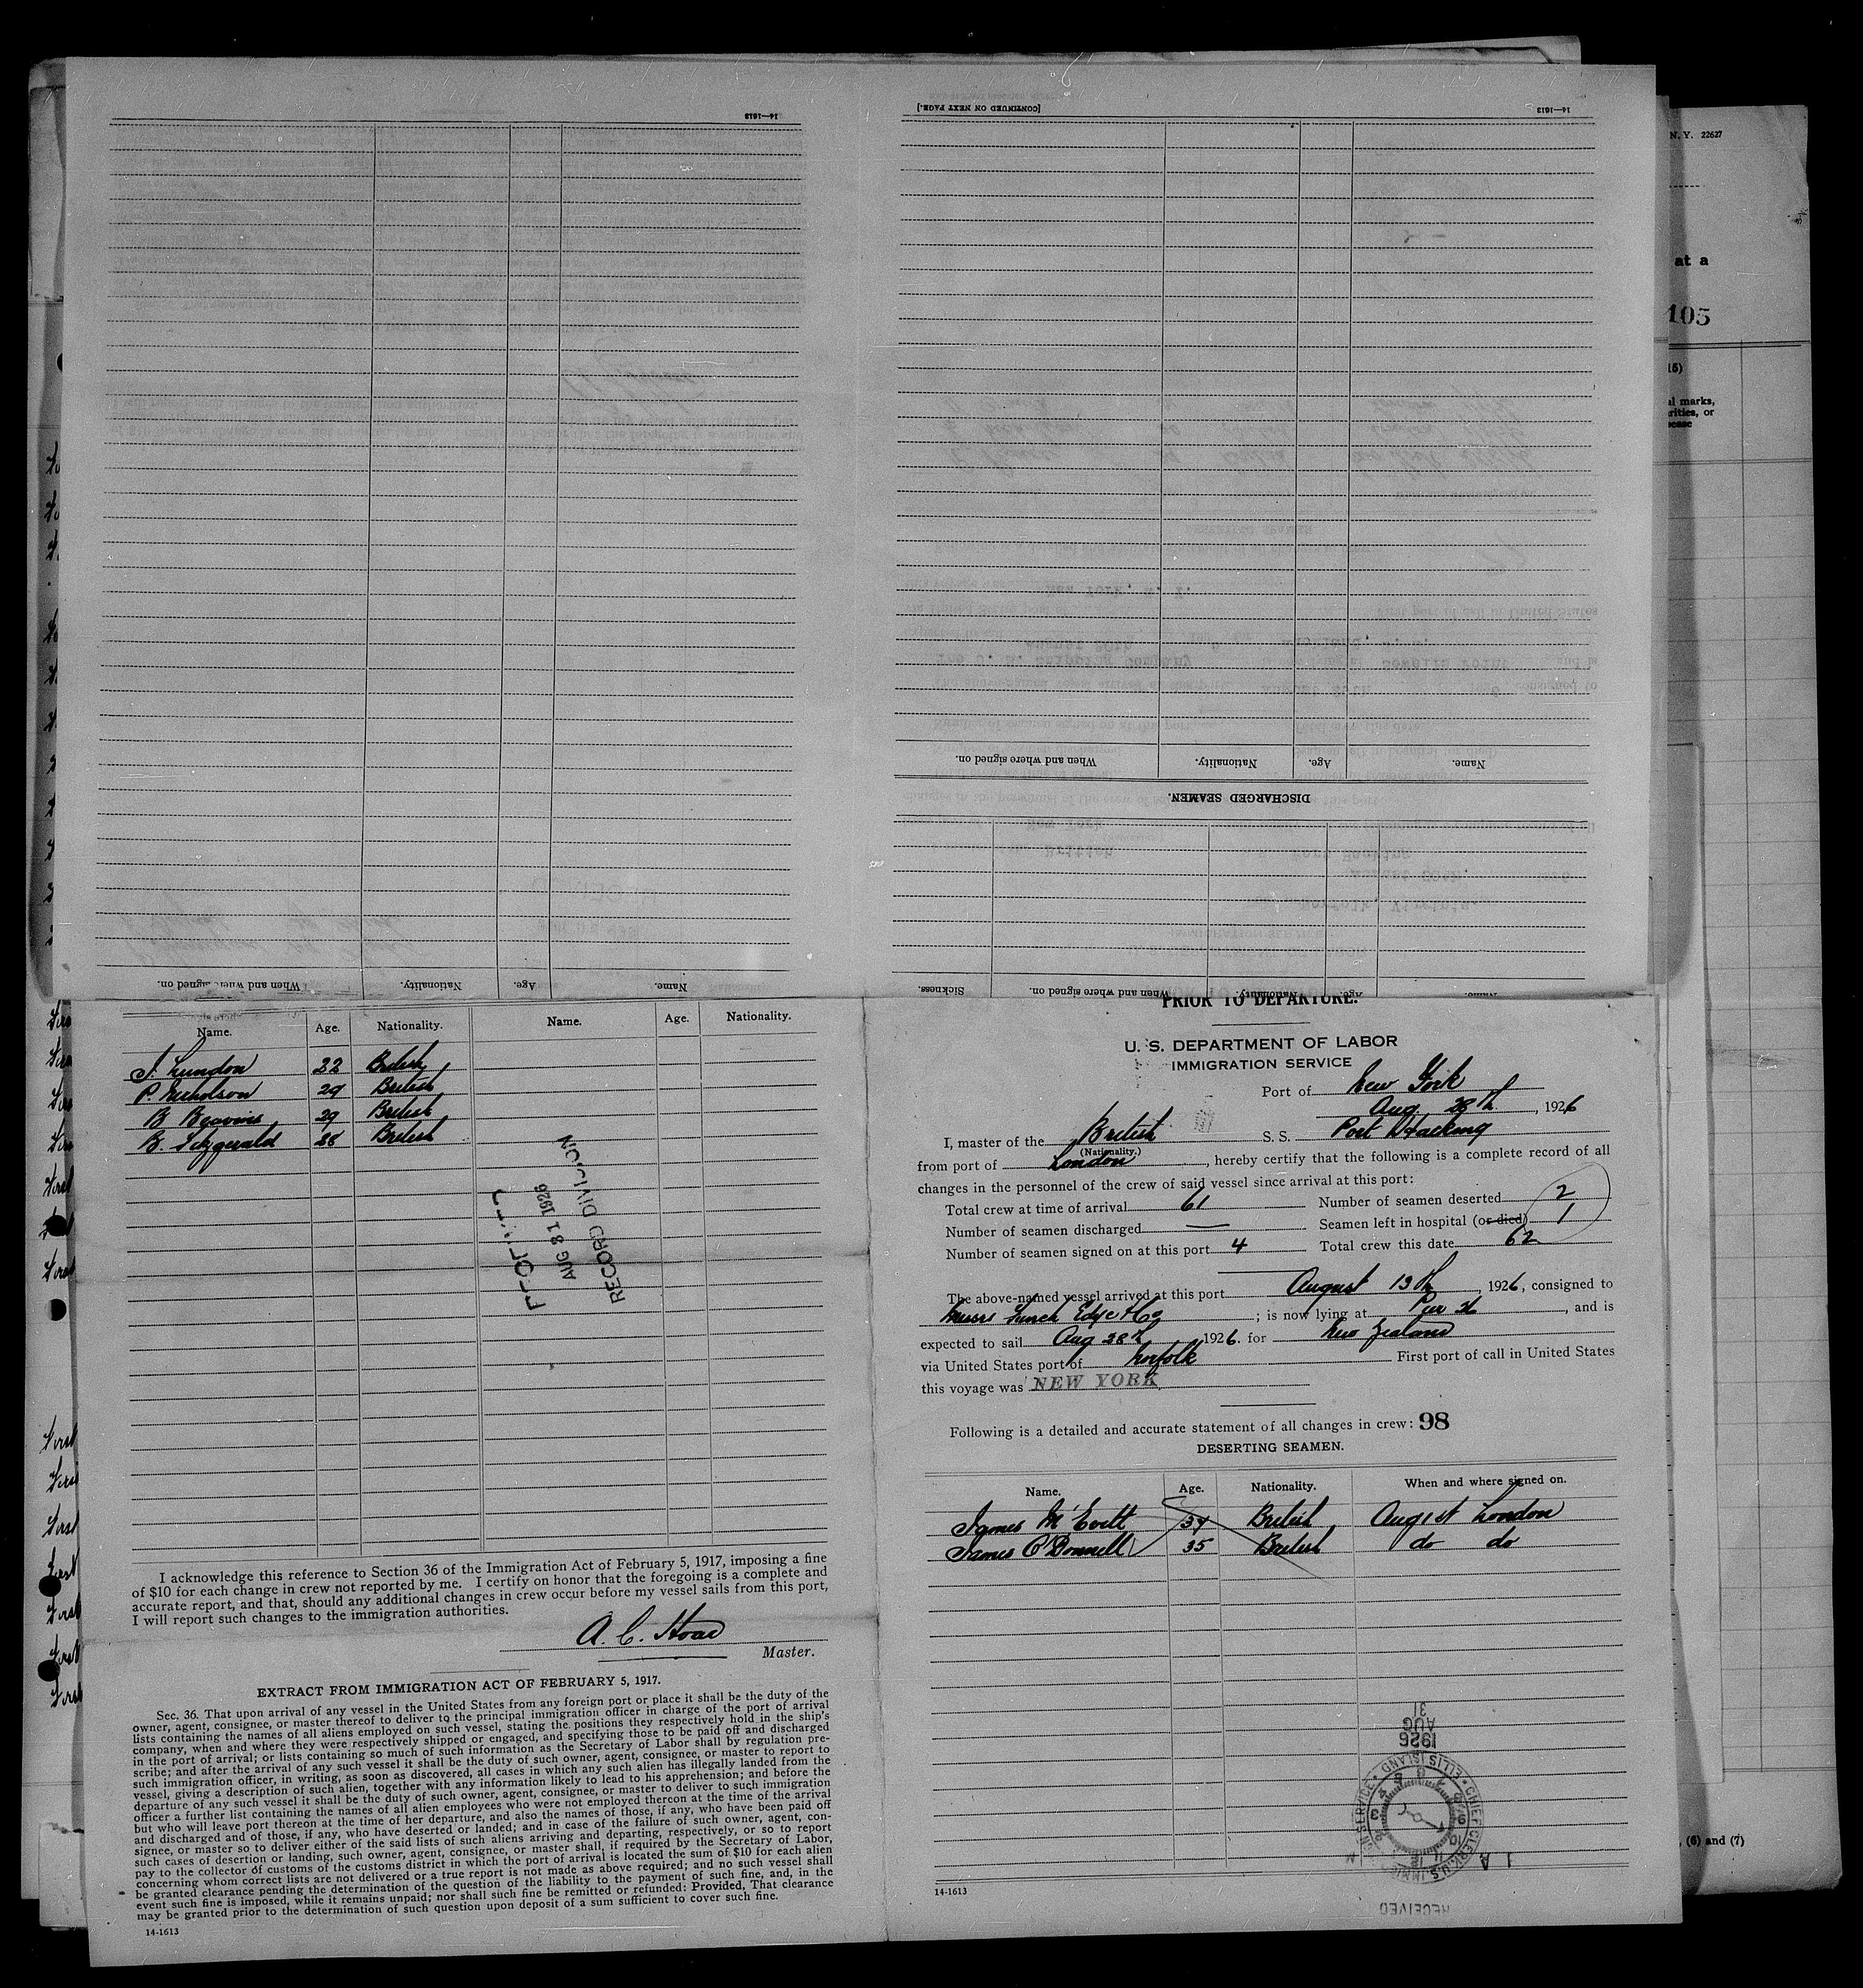 N. Y. 22627
at a
105
15)
al marks,
rities, or
sease
(6) and (7)
14-1613
[CONTINUED ON NEXT PAGE.]
14-1613
Name. Age. Nationality. When and where signed on.
DISCHARGED SEAMEN.
Name. Age. Nationality. When and where signed on. Sickness.
Name. Age. Nationality. When and where signed on.
Name. Age. Nationality. Name. Age. Nationality.
J. Lundon 22 British
P. Nicholson 29 British
B Beavins 29 British
B. Fitzgerald 28 British
AUG 31 1926
RECORD DIVISION
I acknowledge this reference to Section 36 of the Immigration Act of February 5, 1917, imposing a fine
of $10 for each change in crew not reported by me. I certify on honor that the foregoing is a complete and
accurate report, and that, should any additional changes in crew occur before my vessel sails from this port,
I will report such changes to the immigration authorities.
A. C. Hoar
Master.
EXTRACT FROM IMMIGRATION ACT OF FEBRUARY 5, 1917.
Sec. 36. That upon arrival of any vessel in the United States from any foreign port or place it shall be the duty of the
owner, agent, consignee, or master thereof to deliver to the principal immigration officer in charge of the port of arrival
lists containing the names of all aliens employed on such vessel, stating the positions they respectively hold in the ship's
company, when and where they were respectively shipped or engaged, and specifying those to be paid off and discharged
in the port of arrival; or lists containing so much of such information as the Secretary of Labor shall by regulation pre-
scribe; and after the arrival of any such vessel it shall be the duty of such owner, agent, consignee, or master to report to
such immigration officer, in writing, as soon as discovered, all cases in which any such alien has illegally landed from the
vessel, giving a description of such alien, together with any information likely to lead to his apprehension; and before the
departure of any such vessel it shall be the duty of such owner, agent, consignee, or master to deliver to such immigration
officer a further list containing the names of all alien employees who were not employed thereon at the time of the arrival
but who will leave port thereon at the time of her departure, and also the names of those, if any, who have been paid off
and discharged and of those, if any, who have deserted or landed; and in case of the failure of such owner, agent, con-
signee, or master so to deliver either of the said lists of such aliens arriving and departing, respectively, or so to report
such cases of desertion or landing, such owner, agent, consignee, or master shall, if required by the Secretary of Labor,
pay to the collector of customs of the customs district in which the port of arrival is located the sum of $10 for each alien
concerning whom correct lists are not delivered or a true report is not made as above required; and no such vessel shall
be granted clearance pending the determination of the question of the liability to the payment of such fine, and, in the
event such fine is imposed, while it remains unpaid; nor shall such fine be remitted or refunded: Provided, That clearance
may be granted prior to the determination of such question upon deposit of a sum sufficient to cover such fine.
14-1613
PRIOR TO DEPARTURE.
U. S. DEPARTMENT OF LABOR
IMMIGRATION SERVICE
Port of New York
Aug. 28th, 1926
I, master of the British S. S. Port Hacking
(Nationality.)
from port of London, hereby certify that the following is a complete record of all
changes in the personnel of the crew of said vessel since arrival at this port:
Total crew at time of arrival 61 Number of seamen deserted 2
Number of seamen discharged — Seamen left in hospital (or died) 1
Number of seamen signed on at this port 4 Total crew this date 62
The above-named vessel arrived at this port August 13th, 1926, consigned to
Messrs Funch Edye & Co; is now lying at Pier 36, and is
expected to sail Aug 28th 1926. for New Zealand
via United States port of Norfolk First port of call in United States
this voyage was NEW YORK
Following is a detailed and accurate statement of all changes in crew: 98
DESERTING SEAMEN.
Name. Age. Nationality. When and where signed on.
James McEvitt 34 British August London
James O'Donnell 35 British do do
1926
AUG
31
CHIEF CLERK U.S. IMMIGRATION SERVICE ELLIS ISLAND
RECEIVED
14-1613